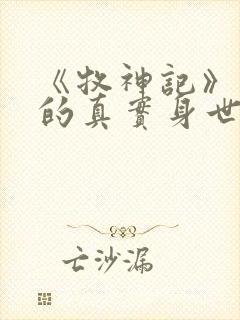 《牧神記》
的真實身世
亡沙漏